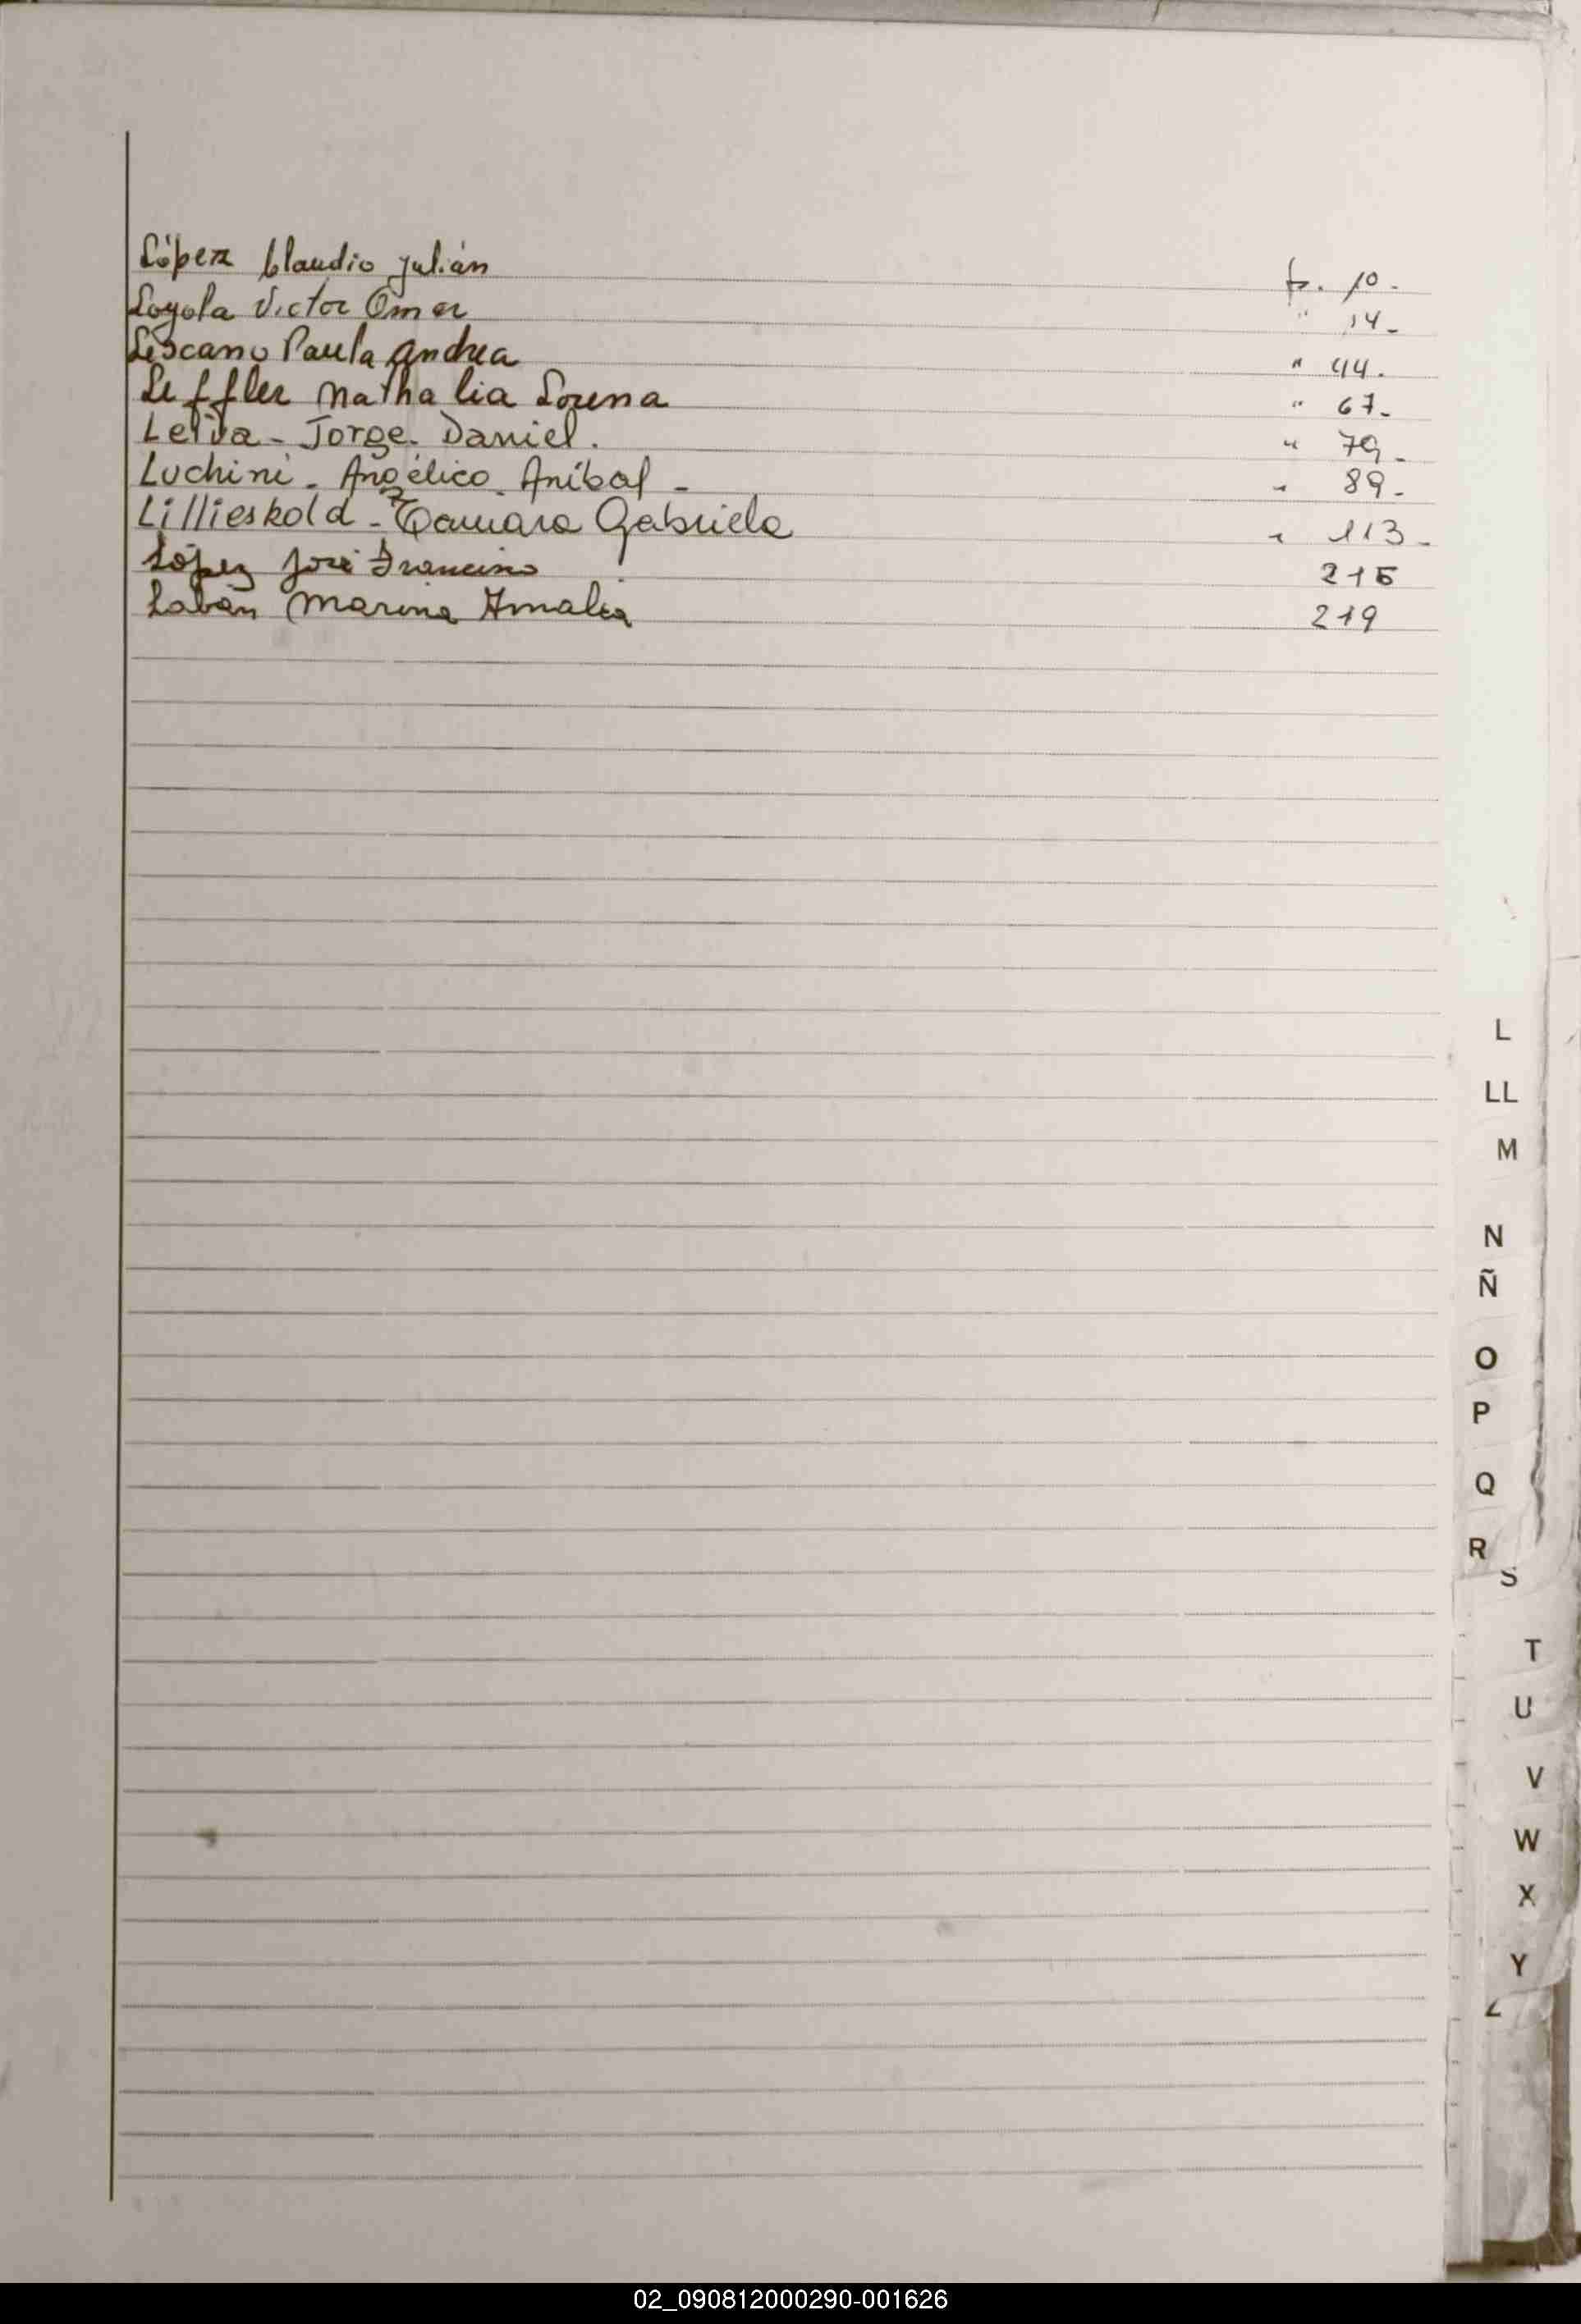 López Claudio Julián fs. 10.-
Loyola Victor Omar " 14-
Liscano Paula Andrea " 44.
Leffler Nathalia Lorena " 67-
Leiva - Jorge. Daniel. " 79-
Luchini - Angélico. Aníbal - " 89-
Lillieskold - Tamara Gabriela " 113-
López José Francisco 215
Labán Marina Amalia 219
L
LL
M
N
Ñ
O
P
Q
R
S
T
U
V
W
X
Y
Z
02_090812000290-001626